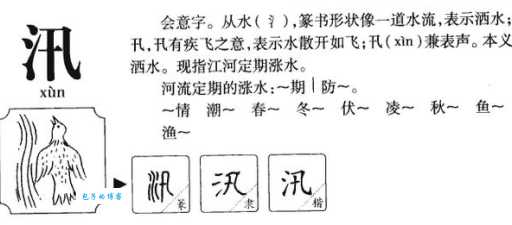 汛
xùn
会意字。从水(氵),篆书形状像一道水流,表示洒水;
卂,卂有疾飞之意,表示水散开如飞;卂(xìn)兼表声。本义
洒水。现指江河定期涨水。
河流定期的涨水:~期|防~。
~情 潮~ 春~ 冬~ 伏~ 凌~ 秋~ 鱼~
渔~
包子的博客
汛 篆
汛 隶
汛 楷